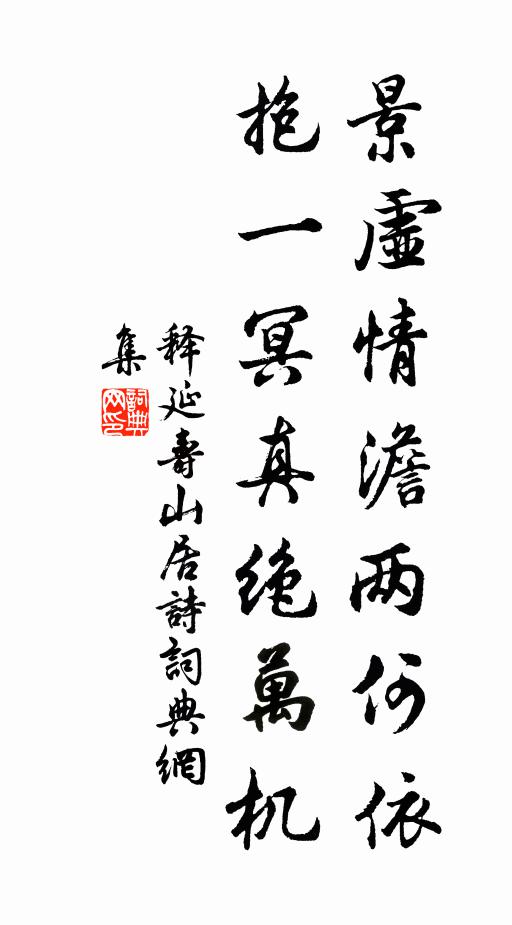 景虛情澹两何依
抱一冥真绝萬机
释延壽山居詩詞典網
集
詞典网印